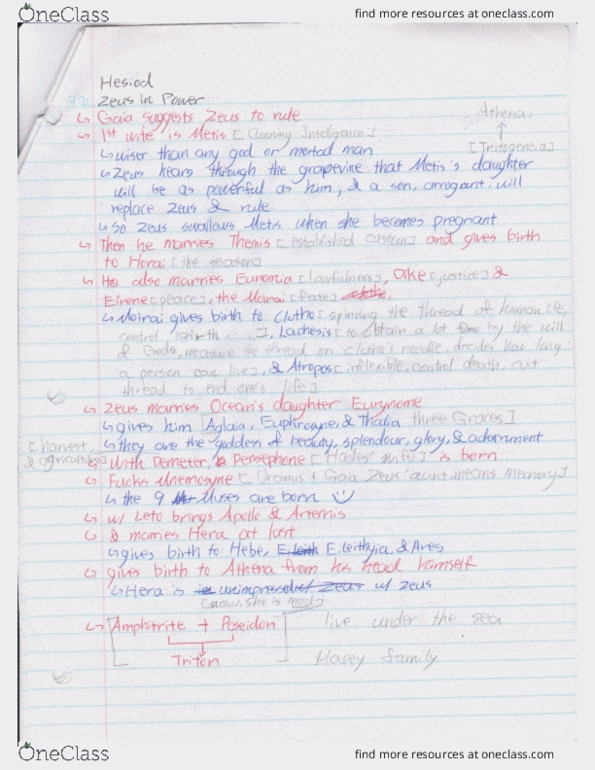 OneClass
find more resources at oneclass.com
Hesiod
Zeus in Power
↳ Gaia suggests Zeus to rule
Athena
↑
[Tritogeneia]
↳ 1st wife is Metis [Cunning Intelligence]
↳ wiser than any god or mortal man
↳ Zeus hears through the grapevine that Metis's daughter
will be as powerful as him, & a son, arrogant, will
replace Zeus & rule
↳ So Zeus swallows Metis when she becomes pregnant
↳ Then he marries Themis [established custom] and gives birth
to Horai [the season]
↳ He also marries Eunomia [lawfulness], Dike [justice] &
Eirene [peace], the Moirai [Fate]
↳ Moirai gives birth to Clotho [spinning the thread of human life,
control birth], Lachesis [to obtain a lot by the will
of Gods, measure the thread on Clotho's needle, decides how long
a person can live], & Atropos [inflexible, control death, cut
thread to end one's life]
↳ Zeus marries Ocean's daughter Eurynome
↳ gives him [Aglaia, Euphrosyne, & Thalia three Graces]
↳ they are the goddess of beauty, splendour, glory, & adornment
[harvest
& agriculture]
↳ With Demeter, Persephone [Hades' wife] is born
↳ Fucks Mnemosyne [Uranus + Gaia Zeus' aunt, means memory]
↳ the 9 Muses are born
↳ w/ Leto brings Apollo & Artemis
↳ & marries Hera at last
↳ gives birth to Hebe, Eileithyia, & Ares
↳ gives birth to Athena from his head himself
↳ Hera is unimpressed w/ Zeus
[naw, she is mad]
↳ Amphitrite + Poseidon
Triton
live under the sea
Happy family
OneClass
find more resources at oneclass.com